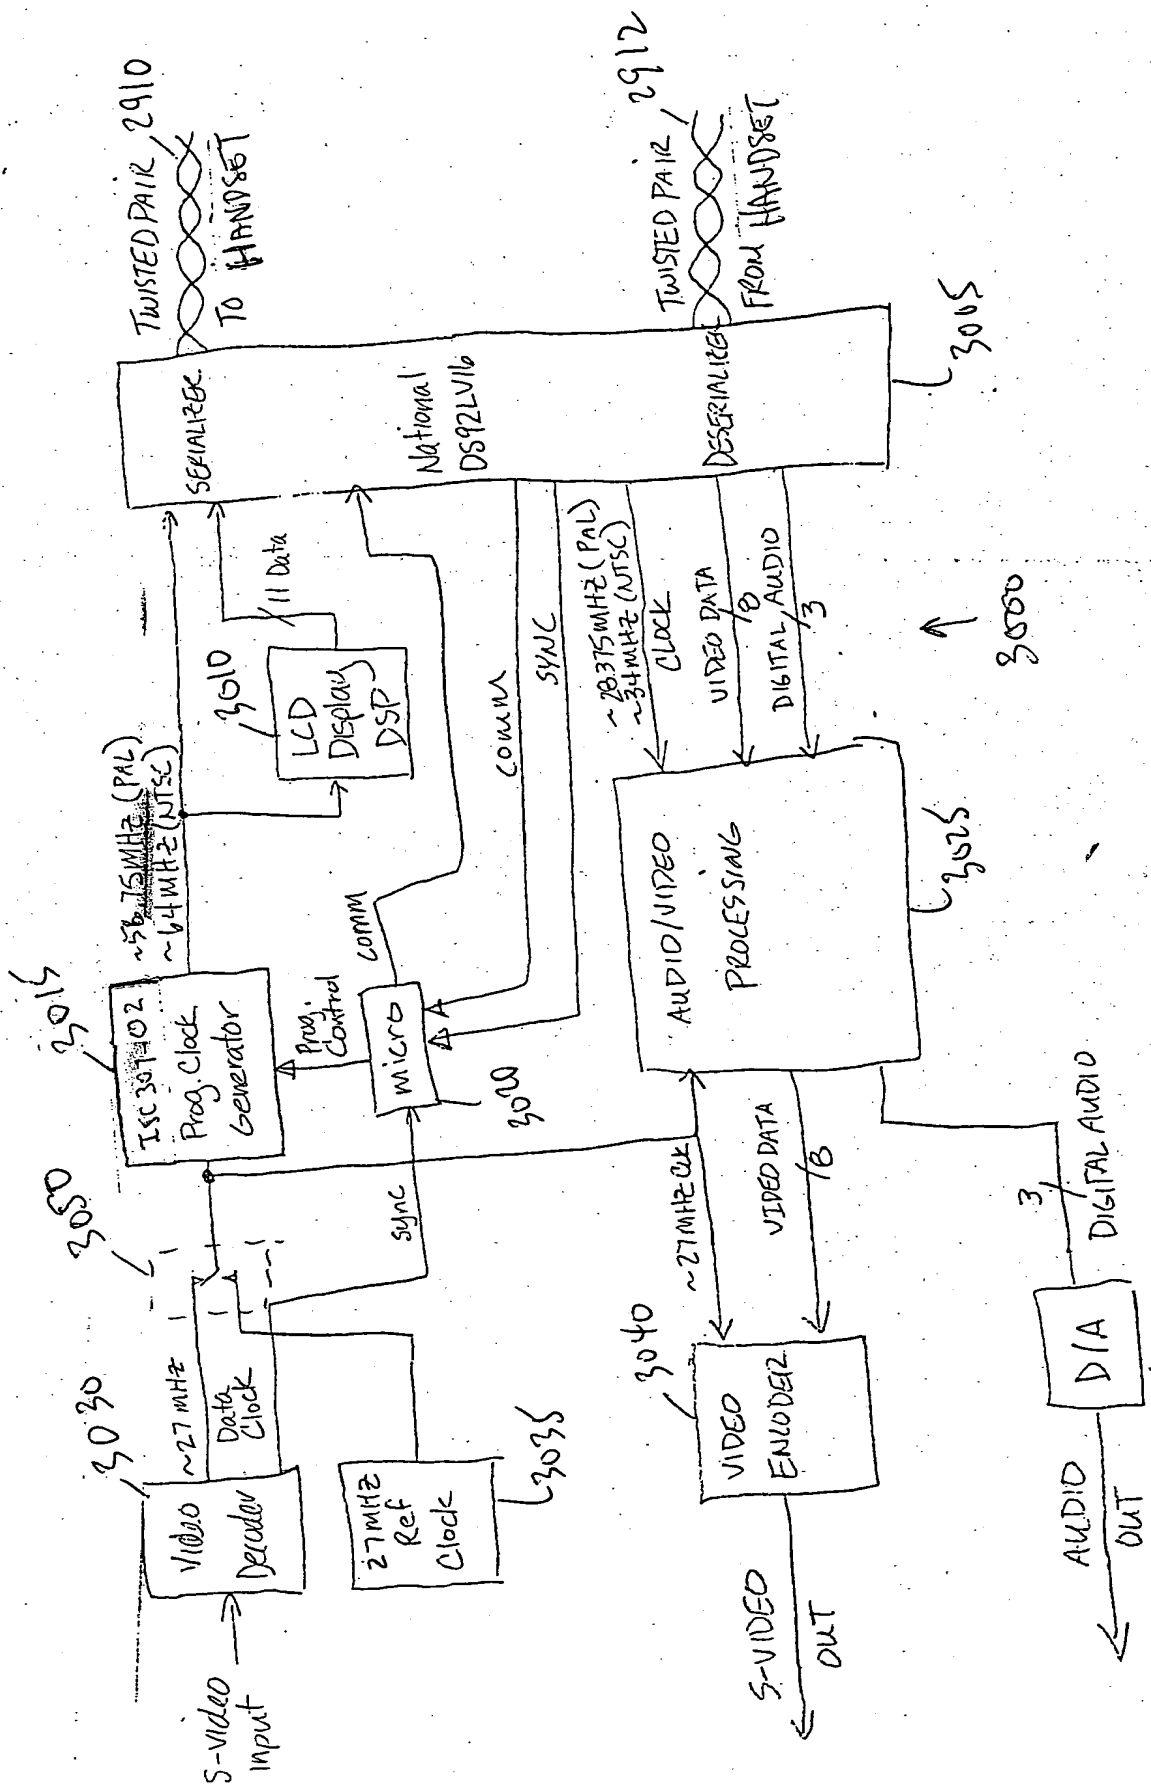 S-video
Input
Video
Decoder
3030
~27 MHz
Data
Clock
3050
27 MHz
Ref
Clock
3035
sync
ISC307-02
Prog. Clock
Generator
3015
Prog.
Control
micro
3020
comm
~56.75MHz (PAL)
~64MHz (NTSC)
LCD
Display
DSP
3010
11 Data
SERIALIZER
National
DS92LV16
DESERIALIZER
3005
TWISTED PAIR 2910
TO HANDSET
TWISTED PAIR 2912
FROM HANDSET
COMM
SYNC
~28.375MHz (PAL)
~34MHz (NTSC)
CLOCK
VIDEO DATA
8
DIGITAL AUDIO
3
3000
AUDIO/VIDEO
PROCESSING
3025
~27MHz CLK
VIDEO DATA
8
3040
VIDEO
ENCODER
S-VIDEO
OUT
3
DIGITAL AUDIO
D/A
AUDIO
OUT